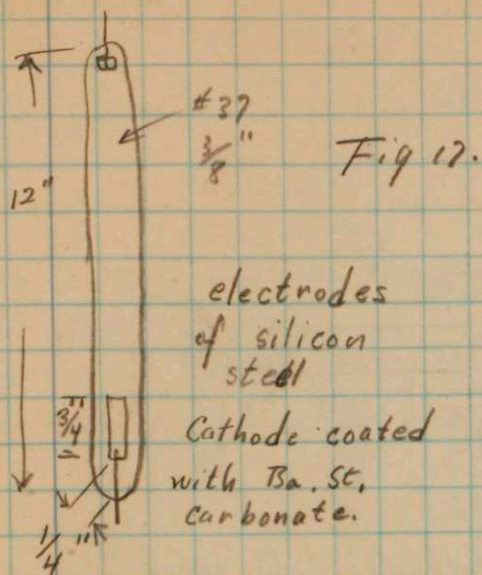 #37
3/8"
Fig 17.
12"
electrodes
of silicon
steel
3/4"
Cathode coated
with Ba. St.
carbonate.
1/4"